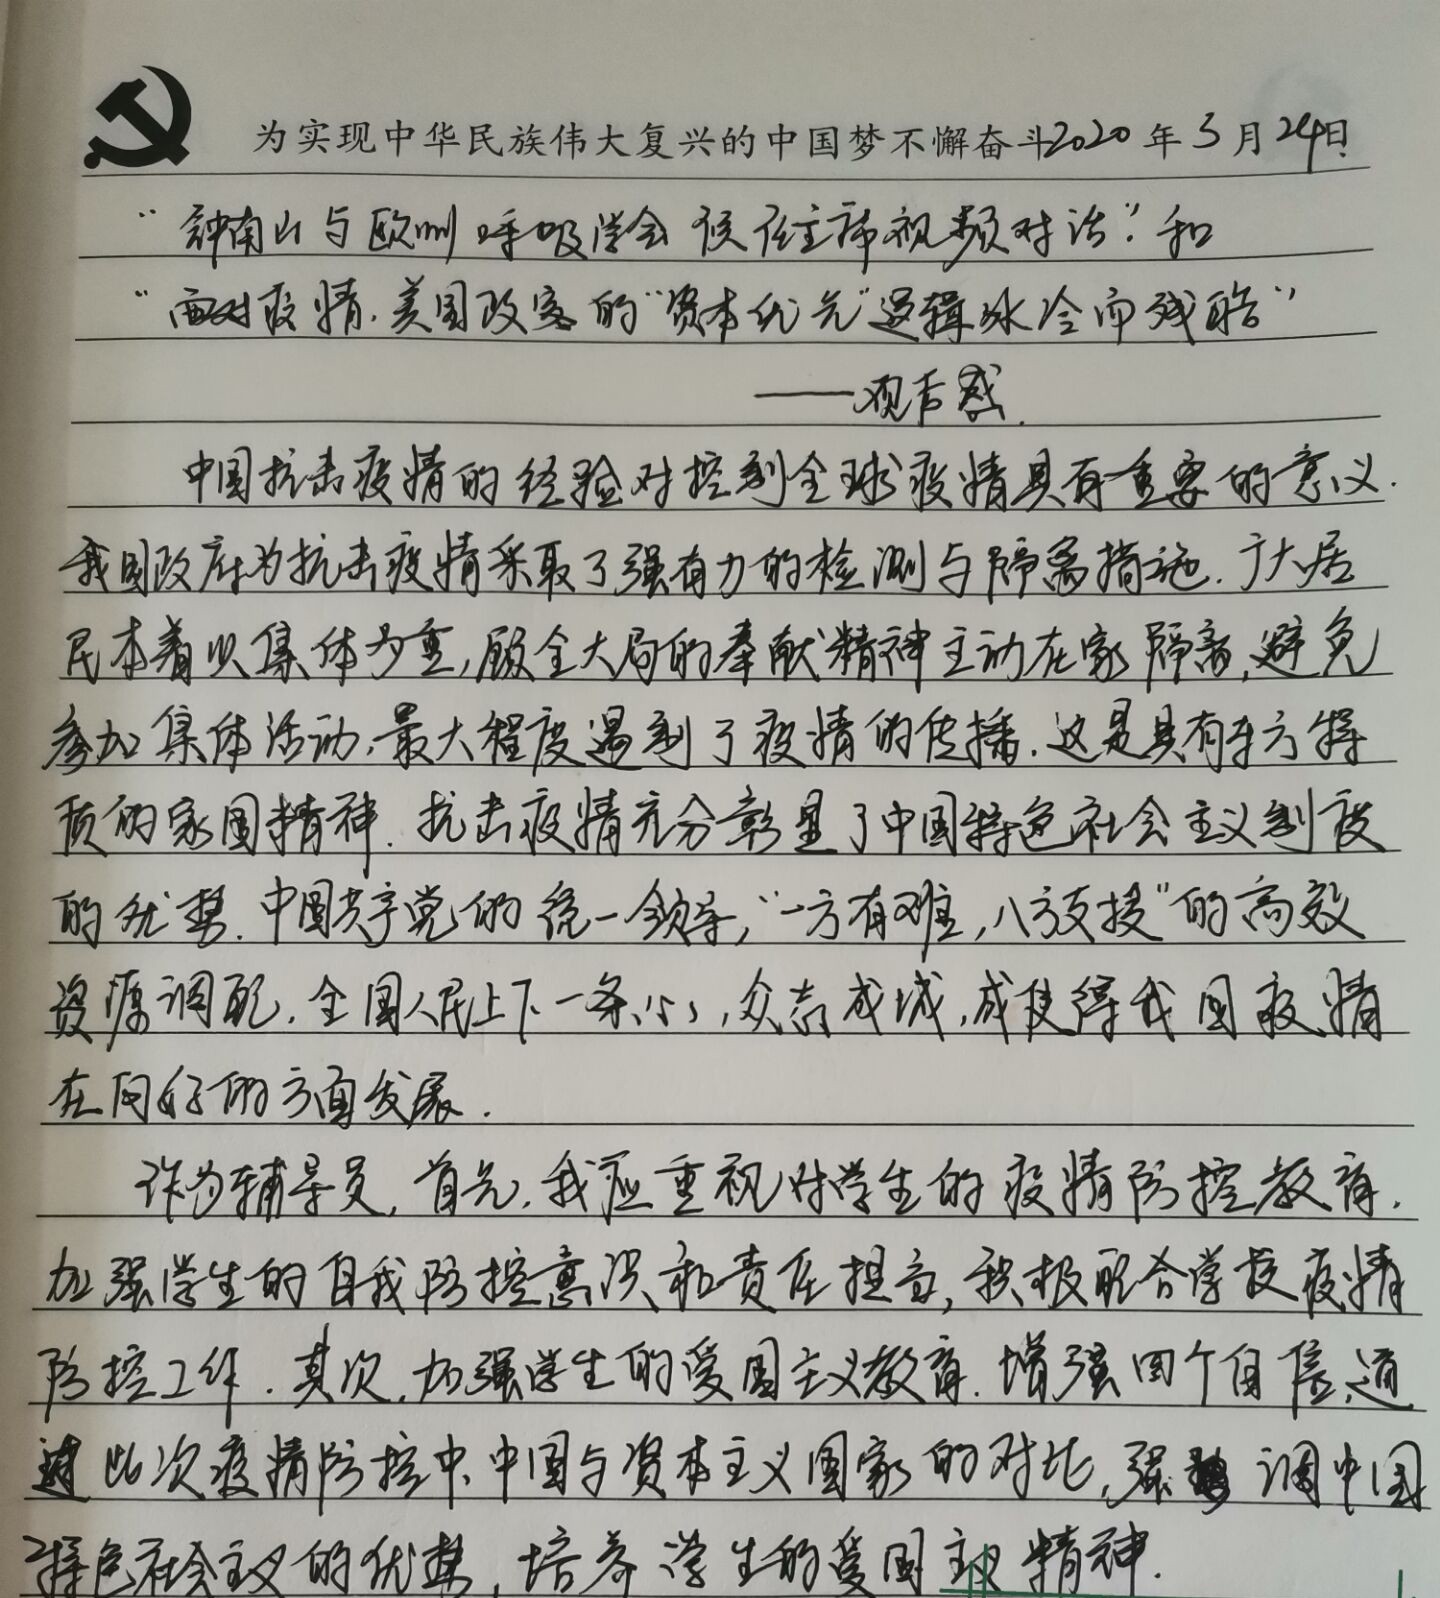 为实现中华民族伟大复兴的中国梦不懈奋斗2020年3月24日
“钟南山与欧洲呼吸学会候任主席视频对话”和
“面对疫情,美国政客的“资本优先”逻辑冰冷而残酷”
——观后感.
中国抗击疫情的经验对控制全球疫情具有重要的意义.
我国政府为抗击疫情采取了强有力的检测与隔离措施.广大居
民本着以集体为重,顾全大局的奉献精神主动在家隔离,避免
参加集体活动,最大程度遏制了疫情的传播.这是具有东方特
质的家国精神.抗击疫情充分彰显了中国特色社会主义制度
的优势.中国共产党的统一领导,“一方有难,八方支援”的高效
资源调配,全国人民上下一条心,众志成城,成使得我国疫情
在向好的方面发展.
作为辅导员,首先,我应重视对学生的疫情防控教育,
加强学生的自我防控意识和责任担当,积极配合学校疫情
防控工作.其次,加强学生的爱国主义教育.增强四个自信,通
过此次疫情防控中,中国与资本主义国家的对比,强调中国
特色社会主义的优势,培养学生的爱国主义精神.